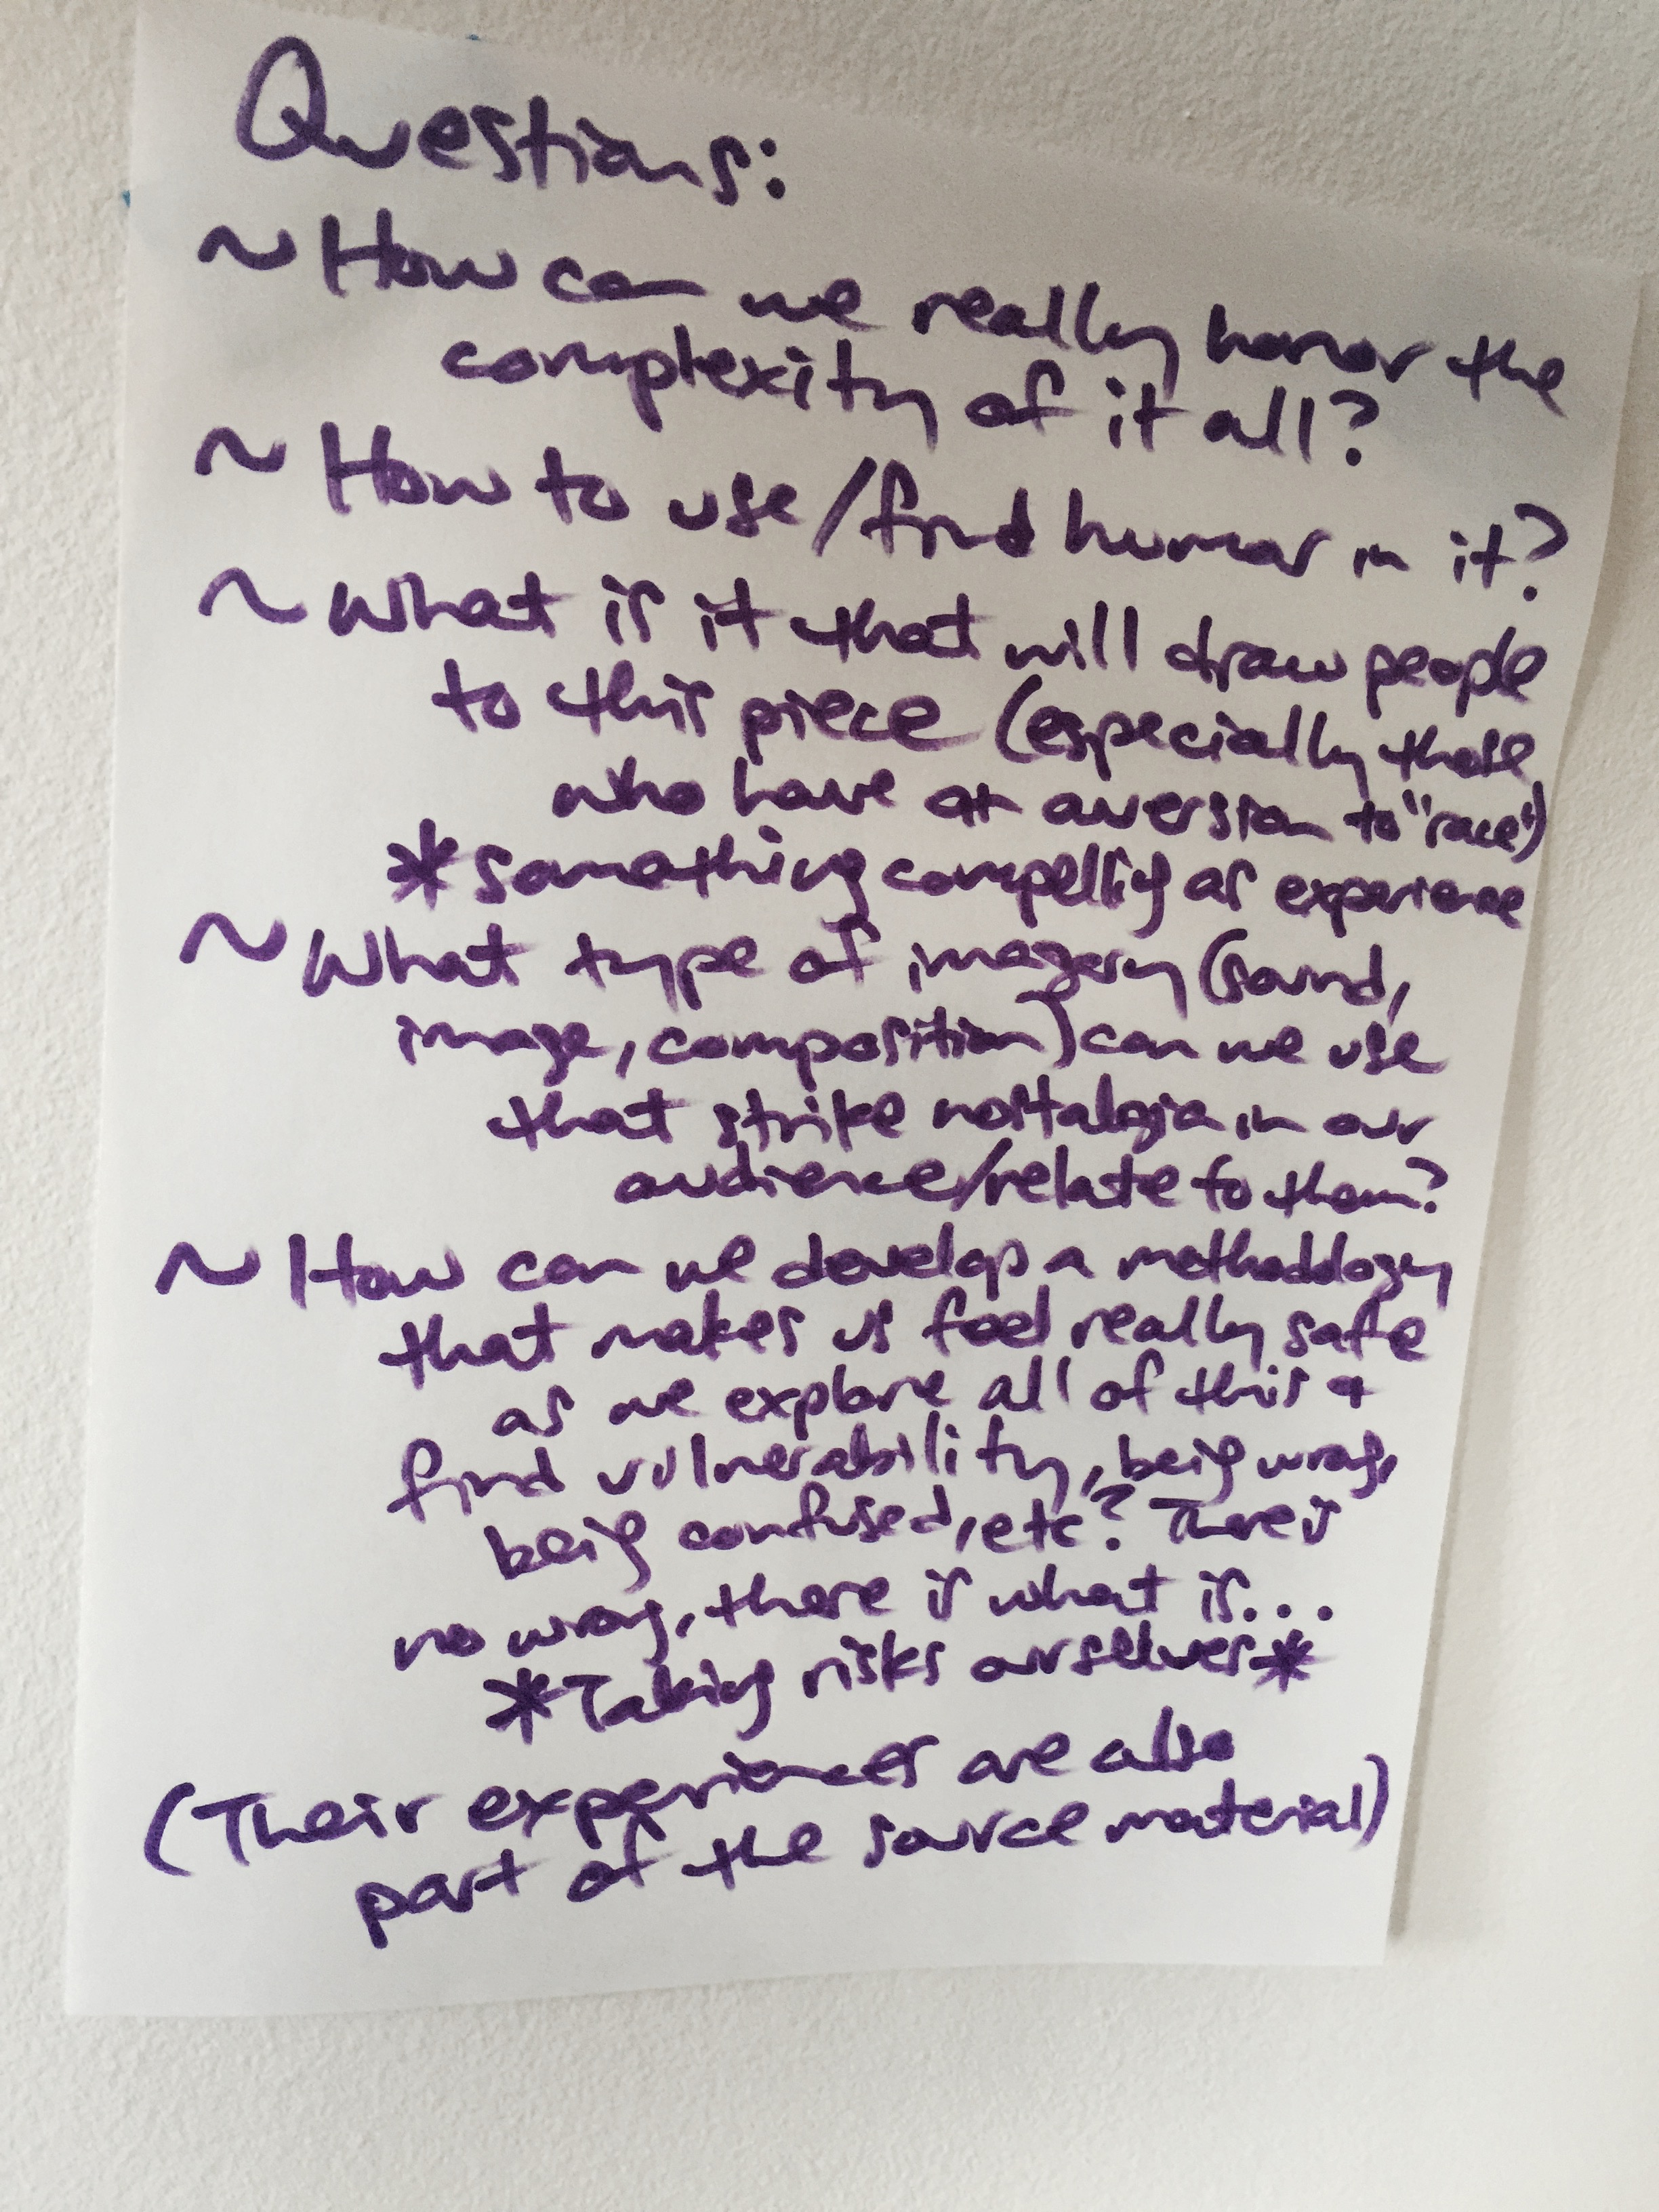 Questions:
~ How can we really honor the
complexity of it all?
~ How to use/find humor in it?
~ What is it that will draw people
to this piece (especially those
who have an aversion to "race")
*something compelling as experience
~ What type of imagery (sound,
image, composition) can we use
that strike nostalgia in our
audience/relate to them?
~ How can we develop a methodology
that makes us feel really safe
as we explore all of this &
find vulnerability, being wrong,
being confused, etc? There is
no wrong, there is what is...
*Taking risks ourselves*
(Their experiences are also
part of the source material)